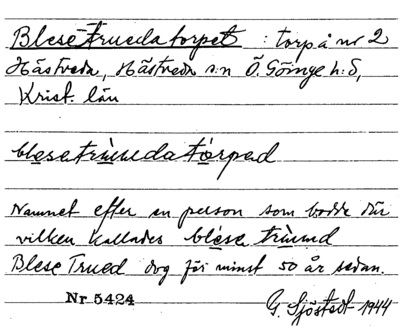 Blese-Trueda torpet : torp å nr 2
Hästveda, Hästveda s:n Ö. Göinge h:d,
Krist. län
blesetrùudatórpad
Namnet efter en person som bodde där
vilken kallades blése trùud
Blese Trued dog för minst 50 år sedan.
Nr 5424 G. Sjöstedt 1944